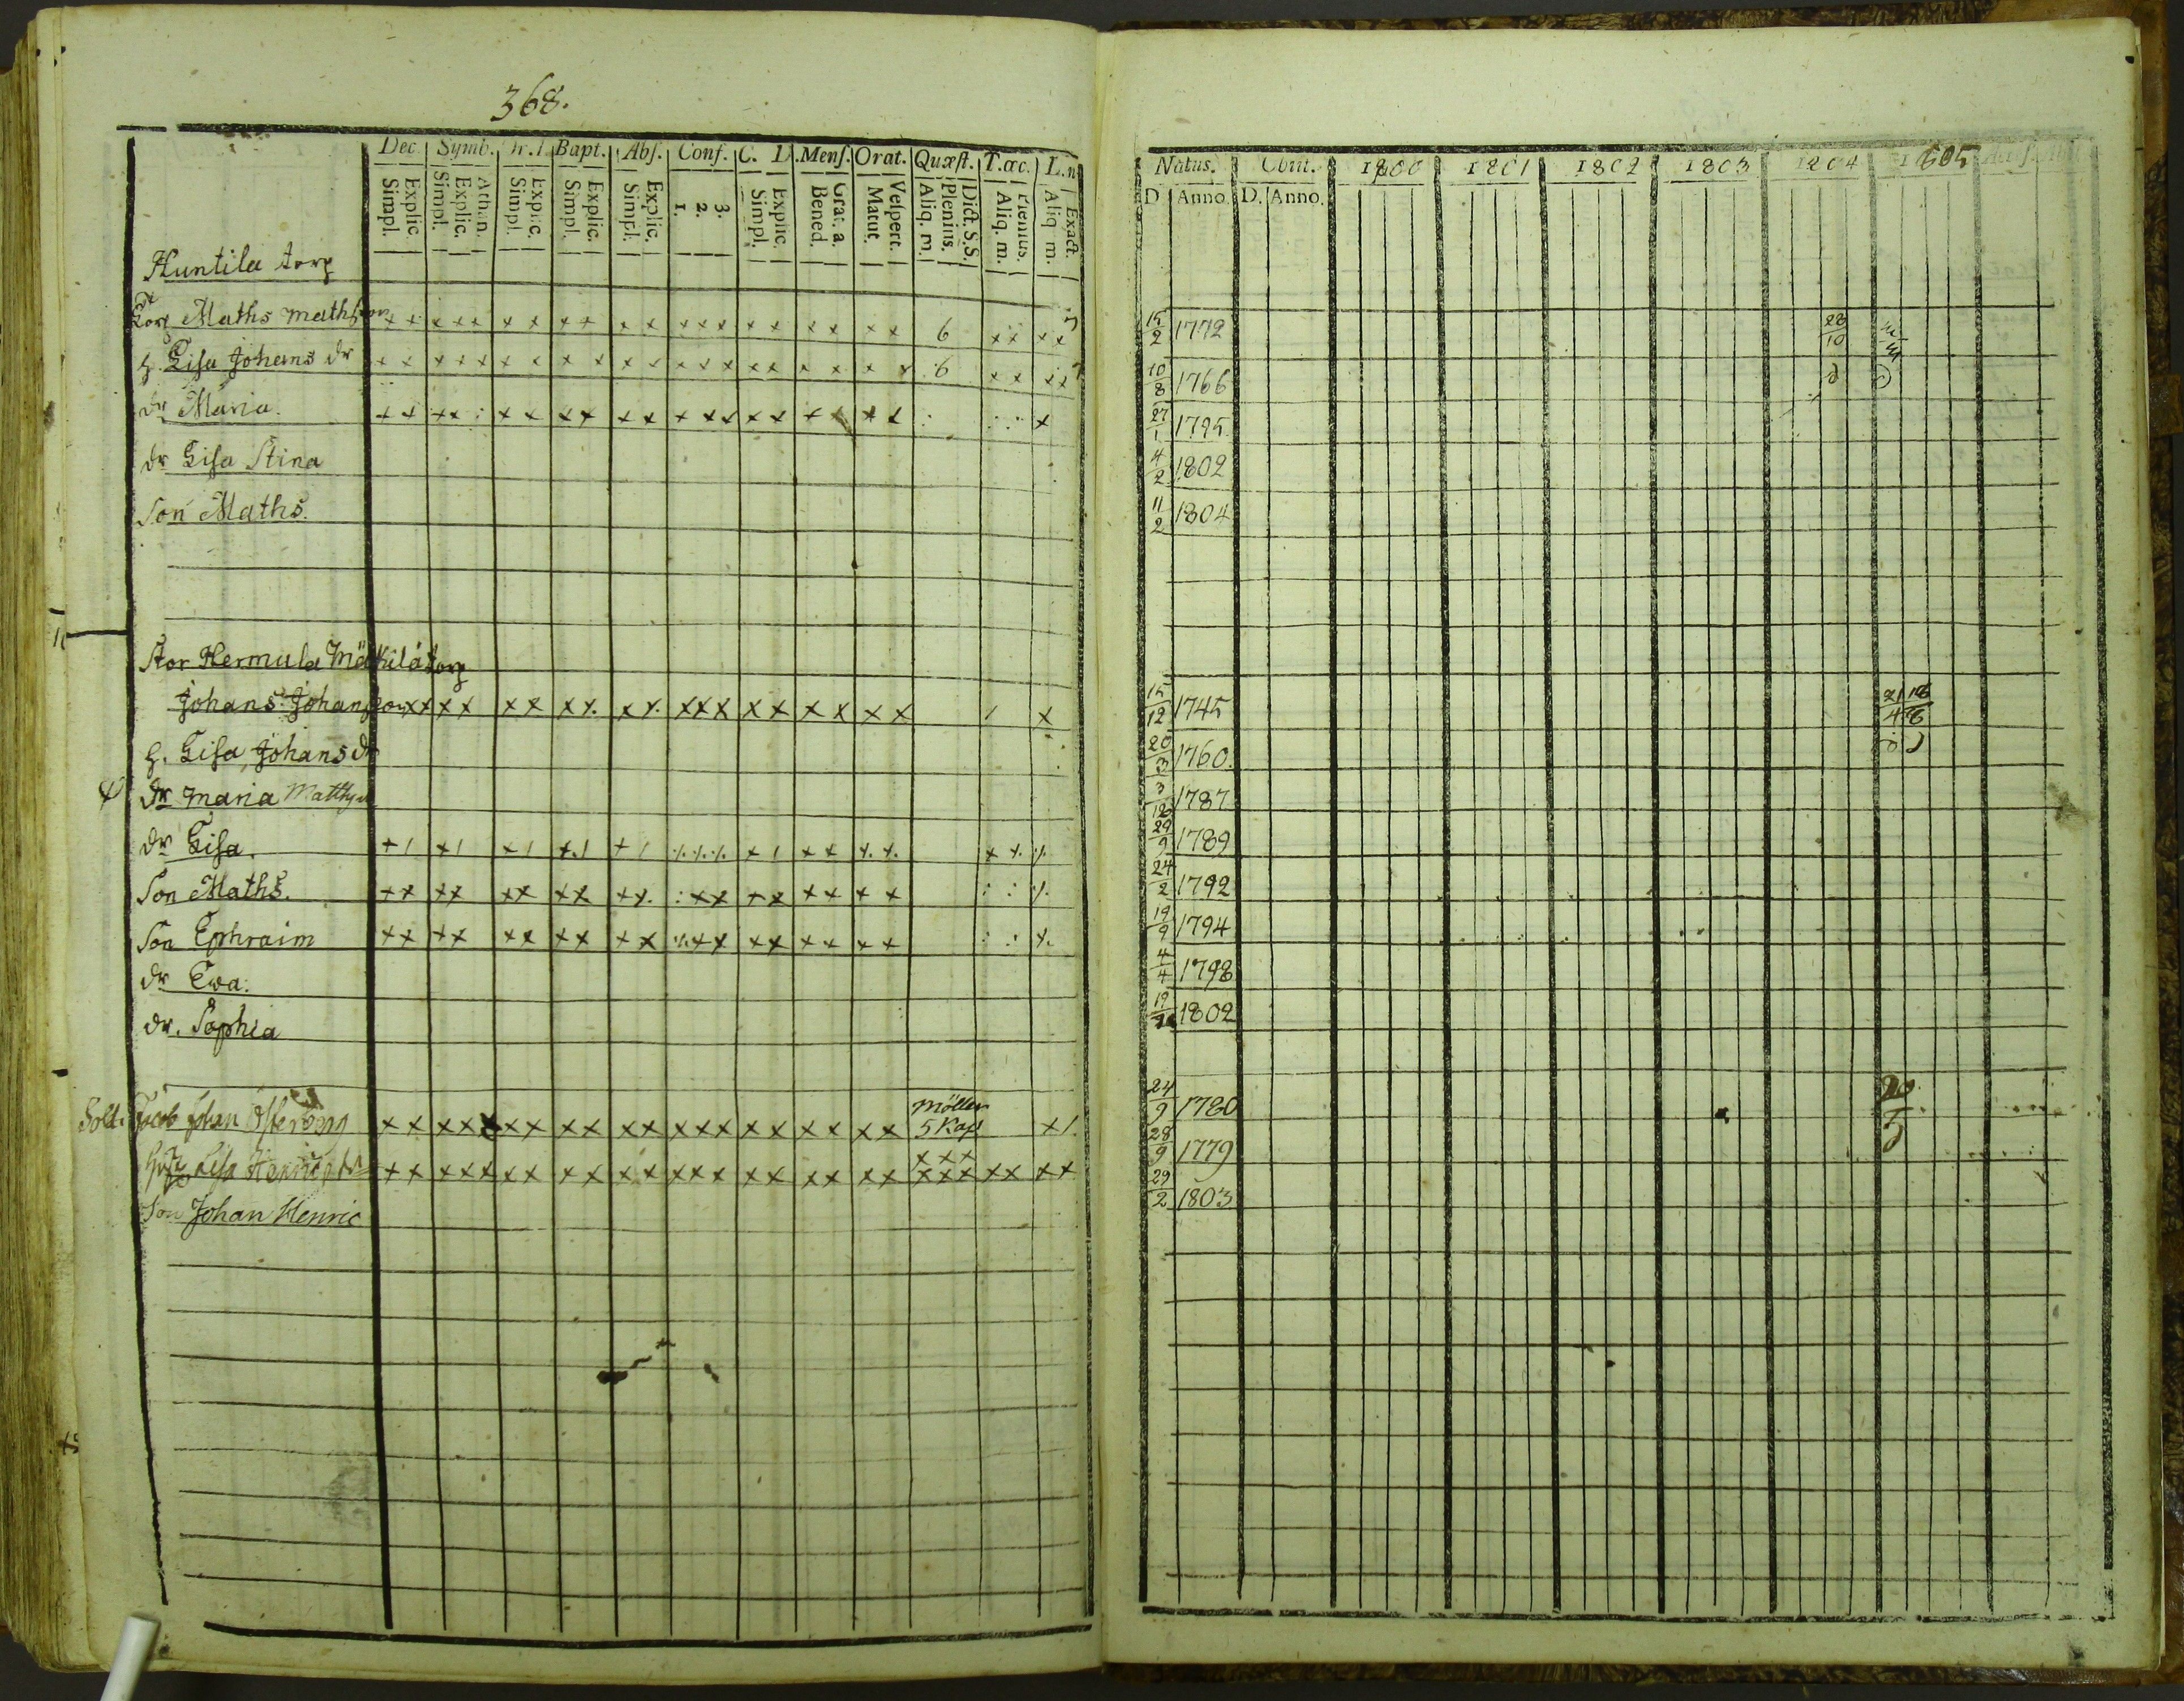 368.
Dec. Symb. Or. Bapt. Abs. Conf. C. D. Mens. Orat. Quæst. T. œc. L. n
Explic. Simpl. Athan. Explic. Simpl. Explic. Simpl. Explic. Simpl. Explic. Simpl. 3. 2. 1. Explic. Simpl. Grat. a. Bened. Vespert. Matut. Dict. S.S. Plenius. Aliq. m. Plenius. Aliq. m. Exact. Aliq. m.
Huntila torp
Torp Maths Mathsson ++ +++ ++ ++ ++ +++ ++ ++ ++ 6 ++ ++
h. Lisa Johans dr ++ +++ ++ ++ ++ +++ ++ ++ ++ 6 ++ ++
dr Maria.
dr Lisa Stina
Son Maths.
Stor Hermula Mäkilä torp
Johans Johansson
h. Lisa Johans dr
dr Maria Matthsd
dr Lisa.
Son Maths.
Son Ephraim
dr Ewa.
dr. Sophia
Sold. Jacob Johan Österberg ++ +++ ++ ++ ++ +++ ++ ++ ++ Möller 5 Kap
Hust Lisa Henricsdr ++ +++ ++ ++ ++ +++ ++ ++ ++ +++ +++ ++ ++
Son Johan Henric
Natus. Obiit. 1800 1801 1802 1803 1804 1805
D Anno. D. Anno.
15/2 1772 28/10
10/8 1766
27/1 1795
4/2 1802
11/2 1804
15/12 1745 21/4 18/8
20/3 1760.
3/12 1787
29/9 1789
24/2 1792
19/9 1794
4/4 1798
19 1802
24/9 1780 20
28/9 1779
29/2 1803